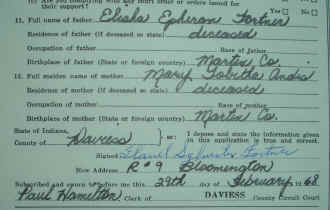 (c) Are you complying with any court order or orders issued for
their support? Yes ☐ No ☐
11. Full name of father Elisha Ephiram Fortner
Residence of father (if deceased so state) deceased
Occupation of father Race of father
Birthplace of father (State or foreign country) Martin Co.
12. Full maiden name of mother Mary Tabitha Andis
Residence of mother (if deceased so state) deceased
Occupation of mother Race of mother
Birthplace of mother (State or foreign country) Martin Co.
State of Indiana,
County of Daviess ss: I depose and state the information given
in this application is true and correct.
Signed Fortner
New Address R # 9 Bloomington
Subscribed and sworn before me this 23th day of February 1968
Paul Hamilton Clerk of DAVIESS County Circuit Court